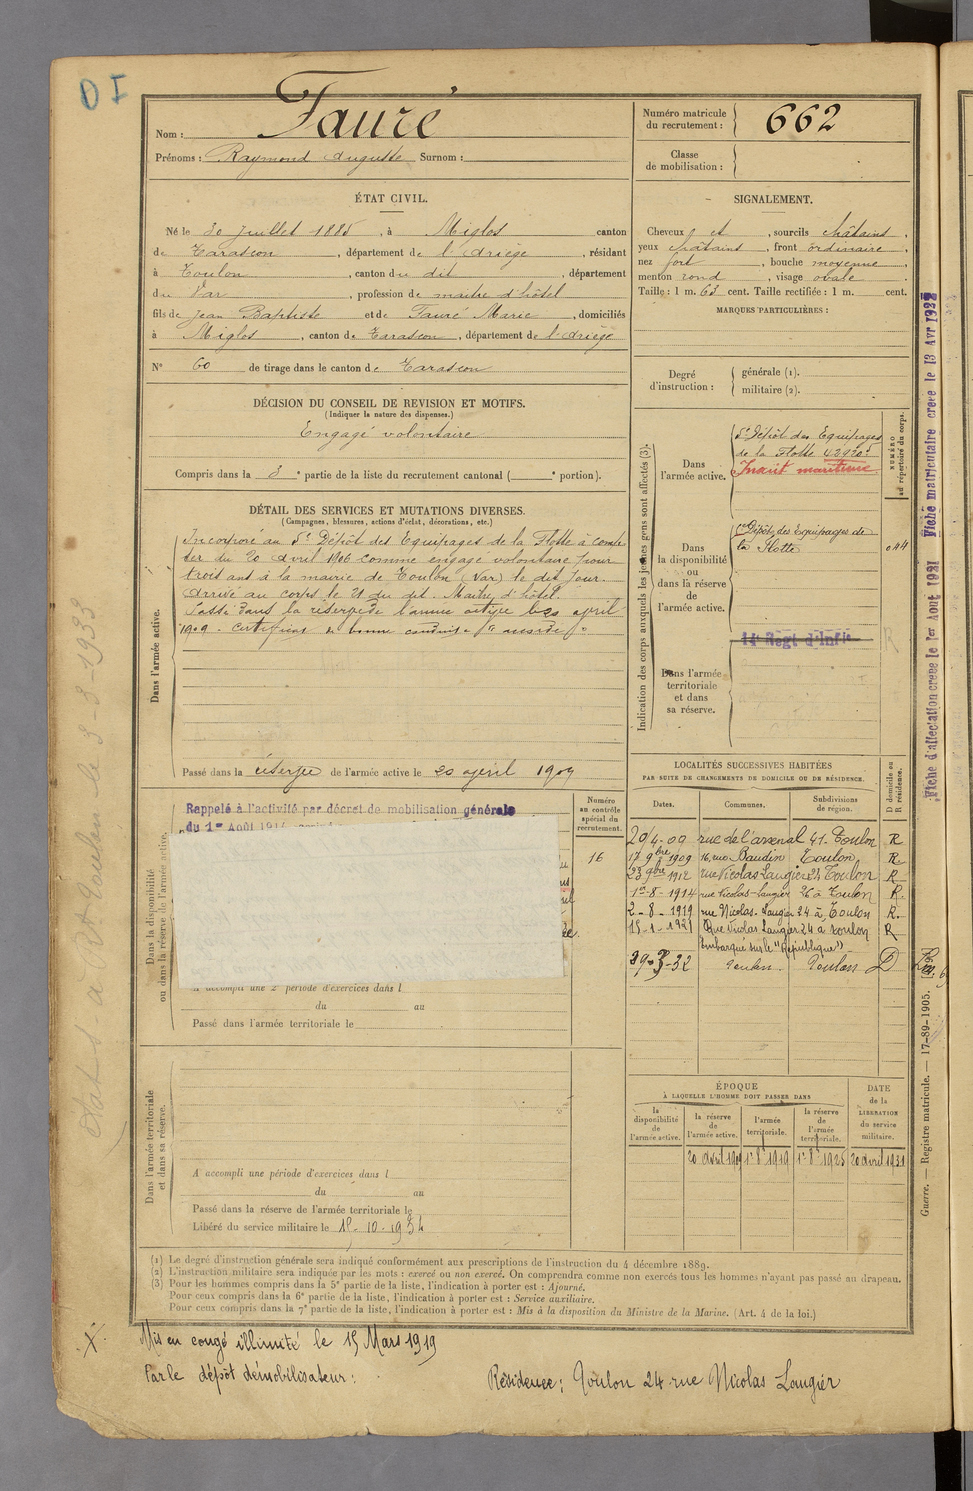 D I
Nom : Fauré
Prénoms : Raymond Auguste Surnom :
Numéro matricule du recrutement : 662
Classe de mobilisation :
ÉTAT CIVIL.
Né le 30 juillet 1885, à Miglos canton
de Tarascon, département de l'Ariège, résidant
à Toulon, canton du dit, département
du Var, profession de maître d'hôtel
fils de Jean Baptiste et de Fauré Marie, domiciliés
à Miglos, canton de Tarascon, département de l'Ariège
N° 60 de tirage dans le canton de Tarascon
SIGNALEMENT.
Cheveux et, sourcils châtains,
yeux châtains, front ordinaire,
nez fort, bouche moyenne,
menton rond, visage ovale
Taille : 1 m. 63 cent. Taille rectifiée : 1 m. cent.
MARQUES PARTICULIÈRES :
Degré d'instruction : générale (1).
militaire (2).
DÉCISION DU CONSEIL DE REVISION ET MOTIFS.
(Indiquer la nature des dispenses.)
Engagé volontaire
Compris dans la 3e partie de la liste du recrutement cantonal ( e portion).
DÉTAIL DES SERVICES ET MUTATIONS DIVERSES.
(Campagnes, blessures, actions d'éclat, décorations, etc.)
Dans l'armée active.
Incorporé au 5e Dépôt des Equipages de la Flotte à comp
ter du 20 avril 1906 comme engagé volontaire pour
trois ans à la mairie de Toulon (Var) le dit jour.
Arrivé au corps le 21 du dit. Maître d'hôtel.
Passé dans la réserve de l'armée active le 20 avril
1909. Certificat de bonne conduite "accordé"
Passé dans la réserve de l'armée active le 20 avril 1909
Indication des corps auxquels les jeunes gens sont affectés (3).
NUMÉRO au répertoire du corps.
Dans l'armée active.
5e Dépôt des Equipages
de la Flotte 42920.5
Inscrit maritime
Dans la disponibilité ou dans la réserve de l'armée active.
Dépôt des Equipages de
la Flotte
Dans l'armée territoriale et dans sa réserve.
14e Regt d'Infie
R
LOCALITÉS SUCCESSIVES HABITÉES
PAR SUITE DE CHANGEMENTS DE DOMICILE OU DE RÉSIDENCE.
D domicile ou R résidence.
Dates. Communes. Subdivisions de région.
20/4-09 rue de l'arsenal 41. Toulon R
17 9bre 1909 16, rue Baudin Toulon R.
23 9bre 1912 rue Nicolas Laugier 24 Toulon R
1er-8-1914 rue Nicolas-Laugier 26 à Toulon R.
2-8-1919 rue Nicolas-Laugier 24 à Toulon R.
15-1-1921 Rue Nicolas Laugier 24 à Toulon R
Embarqué sur le "République")
29-3-32 Toulon Toulon D
Dans la disponibilité ou dans la réserve de l'armée active.
Rappelé à l'activité par décret de mobilisation générale
du 1er Août 1914
Numéro au contrôle spécial du recrutement.
16
A accompli une 2e période d'exercices dans l
du au
Passé dans l'armée territoriale le
Dans l'armée territoriale et dans sa réserve.
A accompli une période d'exercices dans l
du au
Passé dans la réserve de l'armée territoriale le
Libéré du service militaire le 15-10-1934
ÉPOQUE
À LAQUELLE L'HOMME DOIT PASSER DANS
la disponibilité de l'armée active. la réserve de l'armée active. l'armée territoriale. la réserve de l'armée territoriale.
DATE de la LIBÉRATION du service militaire.
20 avril 1909 1er 8bre 1919 1er 8bre 1925 20 avril 1931
(1) Le degré d'instruction générale sera indiqué conformément aux prescriptions de l'instruction du 4 décembre 1889.
(2) L'instruction militaire sera indiquée par les mots : exercé ou non exercé. On comprendra comme non exercés tous les hommes n'ayant pas passé au drapeau.
(3) Pour les hommes compris dans la 5e partie de la liste, l'indication à porter est : Ajourné.
Pour ceux compris dans la 6e partie de la liste, l'indication à porter est : Service auxiliaire.
Pour ceux compris dans la 7e partie de la liste, l'indication à porter est : Mis à la disposition du Ministre de la Marine. (Art. 4 de la loi.)
Mis en congé illimité le 15 Mars 1919
Par le dépôt démobilisateur :
Résidence : Toulon 24 rue Nicolas Laugier
Fiche d'affectation creée le 1er Aout 1921 Fiche matriculaire creee le 13 Avr 1922
Guerre. — Registre matricule. — 17-89-1905.
le 3-3-1933